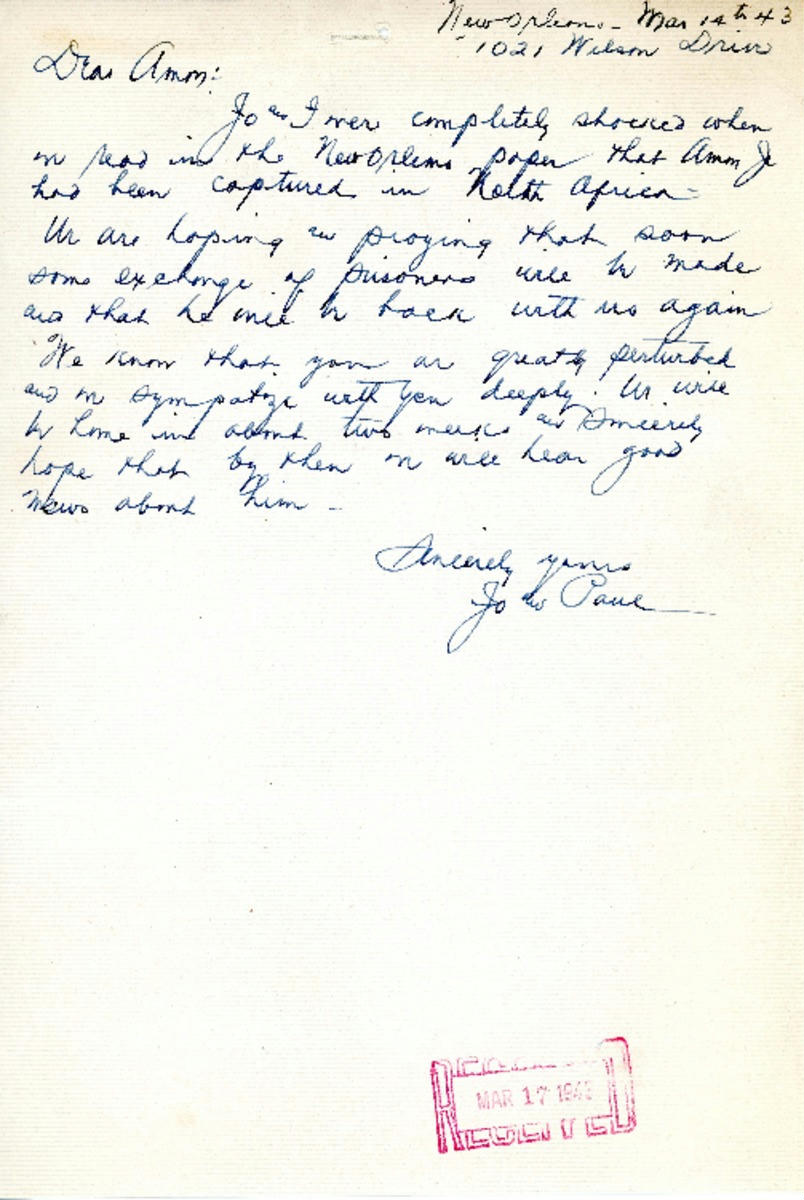 New Orleans - Mar 14th 43
1021 Wilson Drive
Dear Amon:
Jo and I were completely shocked when
we read in the New Orleans paper that Amon Jr
had been captured in North Africa -
We are hoping and praying that soon
some exchange of prisoners will be made
and that he will be back with us again
We know that you are greatly perturbed
and we sympathize with you deeply. We will
be home in about two weeks and sincerely
hope that by then we will hear good
news about him -
Sincerely yours
Jo and Paul
RECEIVED
MAR 17 1943